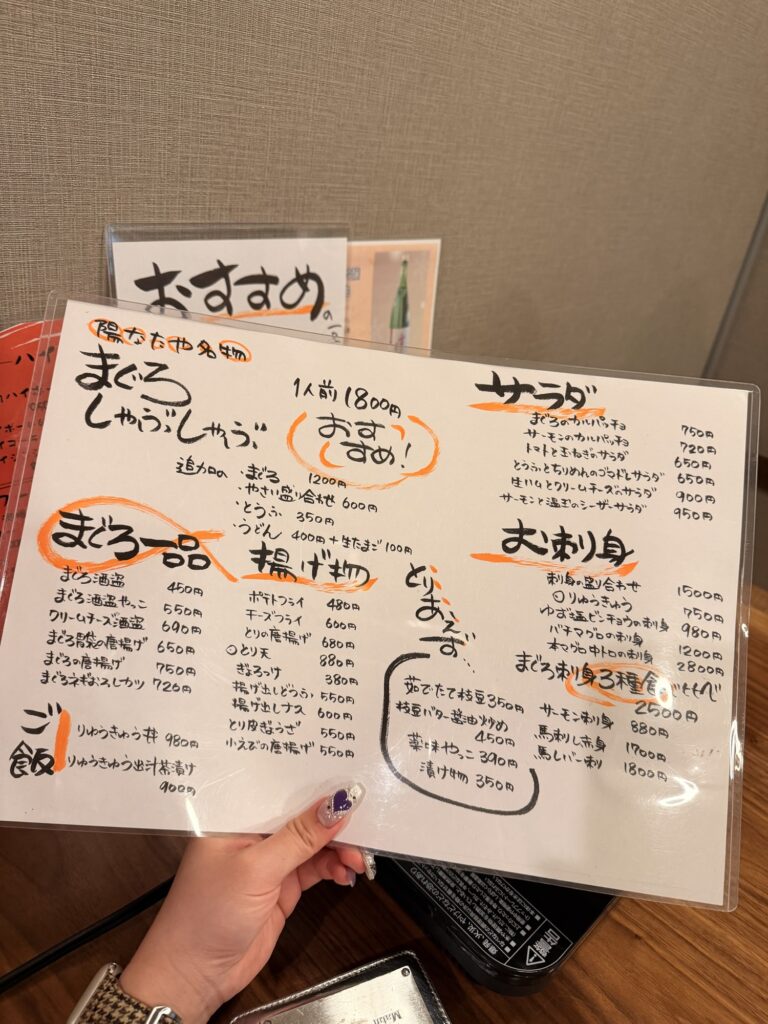 おすすめ
陽なたや名物
まぐろ
しゃぶしゃぶ
1人前 1800円
おすすめ!
追加の ・まぐろ 1200円
・やさい盛り合わせ 600円
・とうふ 350円
・うどん 400円 + 生たまご 100円
まぐろ一品
まぐろ酒盗 450円
まぐろ酒盗やっこ 550円
クリームチーズ酒盗 690円
まぐろ胃袋の唐揚げ 650円
まぐろの唐揚げ 750円
まぐろネギおろしカツ 720円
ご飯
りゅうきゅう丼 980円
りゅうきゅう出汁茶漬け
900円
揚げ物
ポテトフライ 480円
チーズフライ 600円
とりの唐揚げ 680円
○とり天 880円
ぎょろっけ 380円
揚げ出しどうふ 550円
揚げ出しナス 600円
とり皮ぎょうざ 550円
小えびの唐揚げ 550円
とりあえず
茹でたて枝豆 350円
枝豆バター醤油炒め
450円
薬味やっこ 390円
漬け物 350円
サラダ
まぐろのカルパッチョ 750円
サーモンのカルパッチョ 720円
トマトと玉ねぎのサラダ 650円
とうふとちりめんのゴマドレサラダ 650円
生ハムとクリームチーズのサラダ 900円
サーモンと温玉のシーザーサラダ 950円
お刺身
刺身の盛り合わせ 1500円
○りゅうきゅう 750円
ゆず塩ビンチョウの刺身 980円
バチマグロの刺身 1200円
本マグロ中トロの刺身 2800円
まぐろ刺身3種食べ比べ
2500円
サーモン刺身 880円
馬刺し赤身 1700円
馬レバー刺 1800円